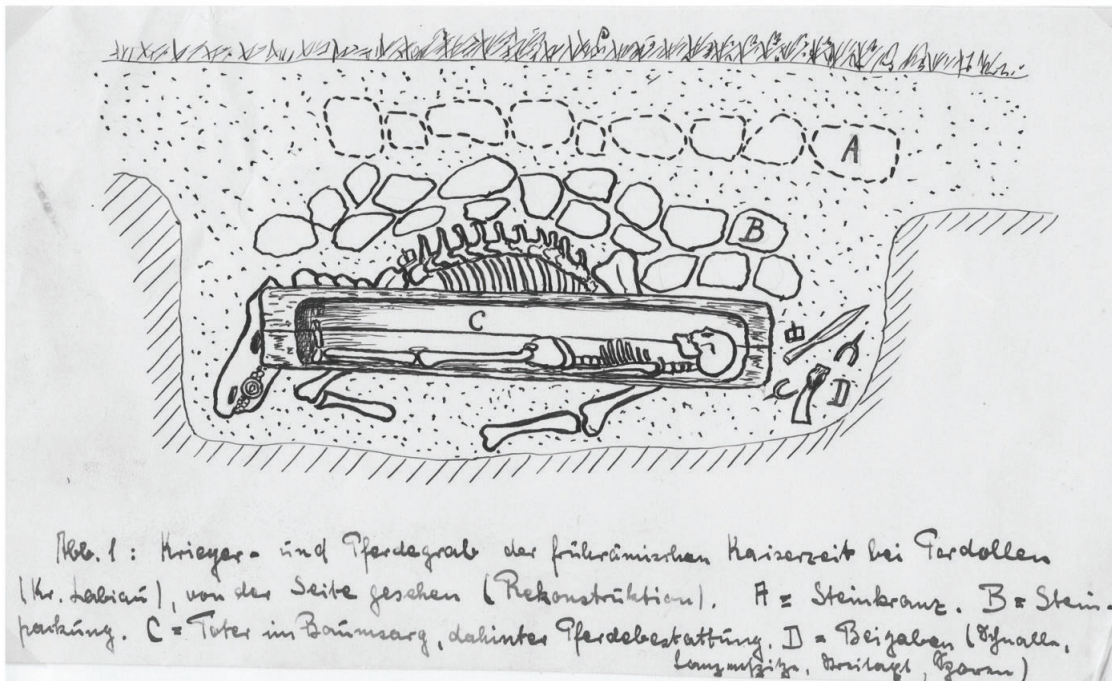 A
B
C
D
Abb. 1 : Krieger- und Pferdegrab der frührömischen Kaiserzeit bei Perdollen
(Kr. Labiau), von der Seite gesehen (Rekonstruktion). A = Steinkranz. B = Stein-
packung. C = Toter im Baumsarg, dahinter Pferdebestattung. D = Beigaben (Schnalle,
Lanzenspitze, Streitaxt, Sporen)